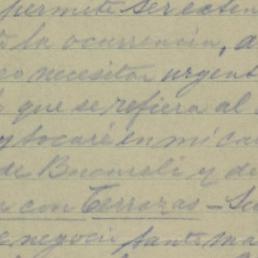 permite ser exten
la ocurrencia, a
necesitar urgent
que se refiera al
y tocaré en mi ca
de Bucareli y de
con Terrazas - Su
negocio tante ma